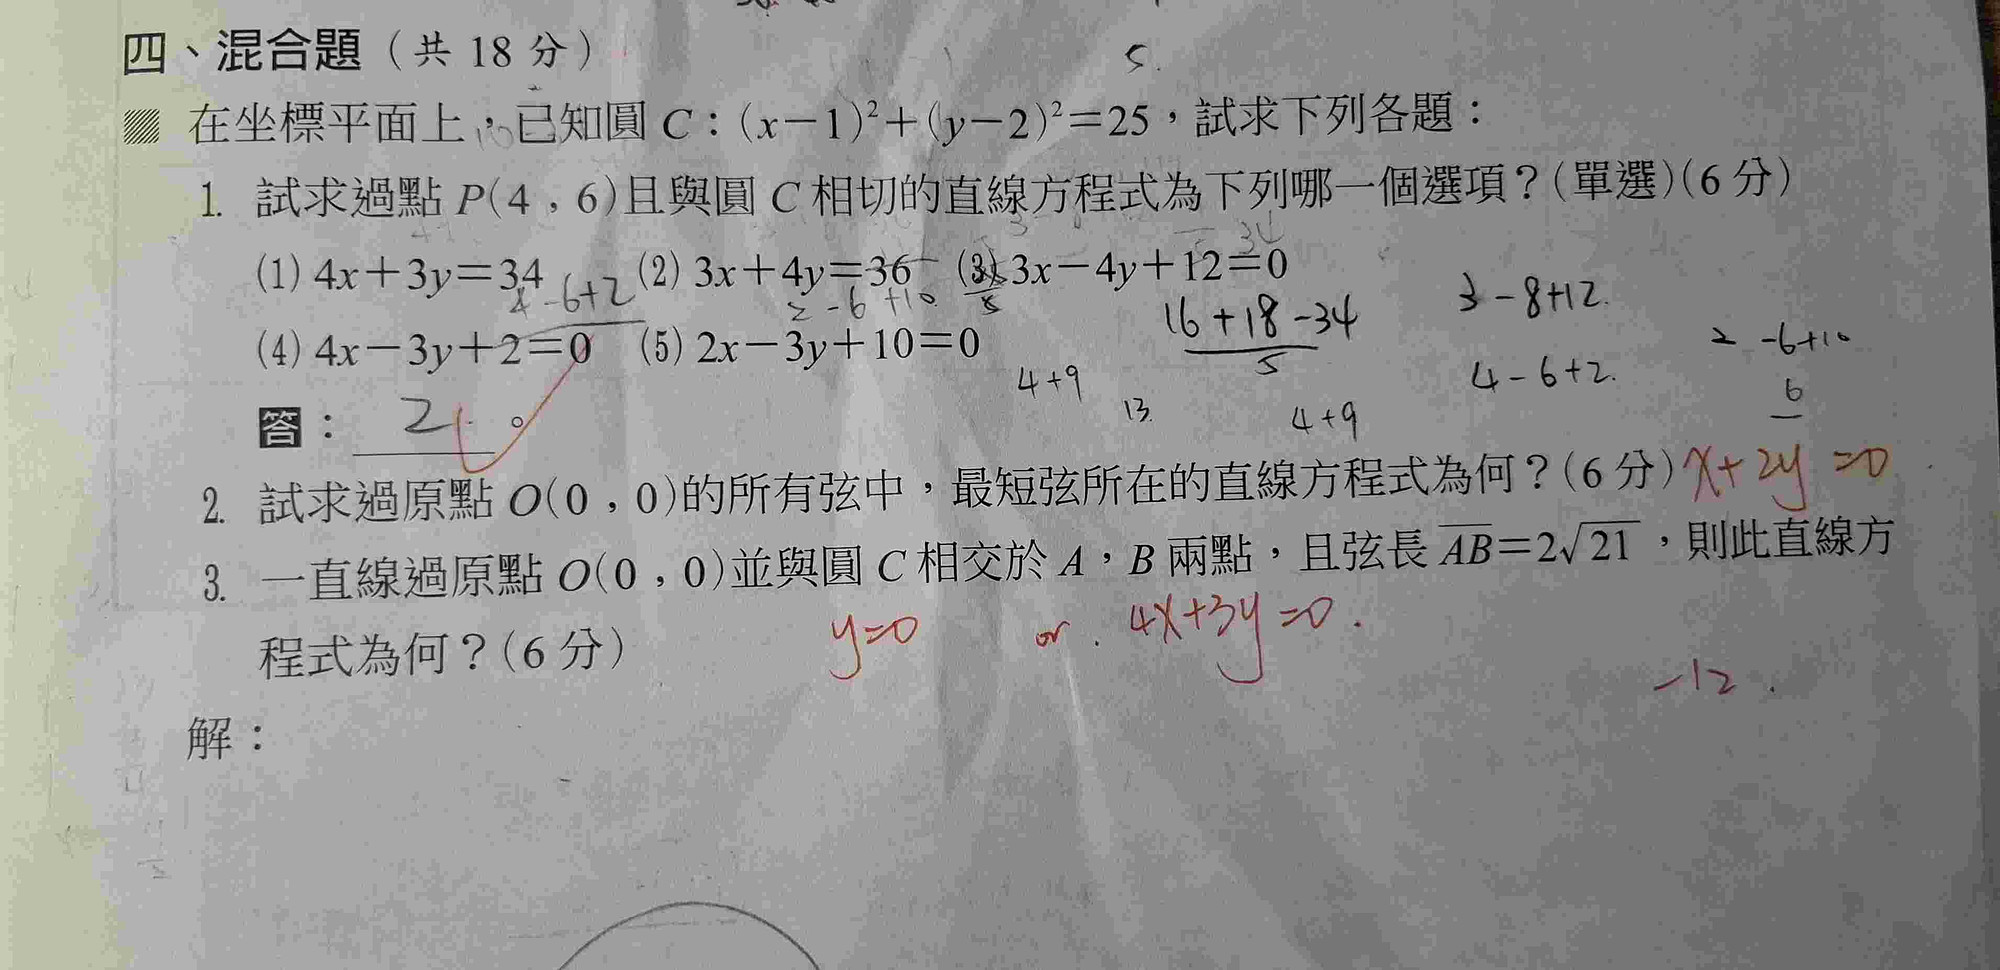 四、混合題(共 18 分)
5.
在坐標平面上,已知圓 C:(x−1)²+(y−2)²=25,試求下列各題:
1. 試求過點 P(4,6)且與圓 C 相切的直線方程式為下列哪一個選項?(單選)(6 分)
(1) 4x+3y=34 (2) 3x+4y=36 (3) 3x−4y+12=0
4-6+2 2-6+10 16+18-34 3-8+12.
5
(4) 4x−3y+2=0 (5) 2x−3y+10=0
4+9 13. 4+9 4-6+2. 2-6+10
6
答: 2 。
2. 試求過原點 O(0,0)的所有弦中,最短弦所在的直線方程式為何?(6 分) x+2y=0
3. 一直線過原點 O(0,0)並與圓 C 相交於 A,B 兩點,且弦長 AB=2√21,則此直線方
程式為何?(6 分) y=0 or. 4x+3y=0.
-12.
解: